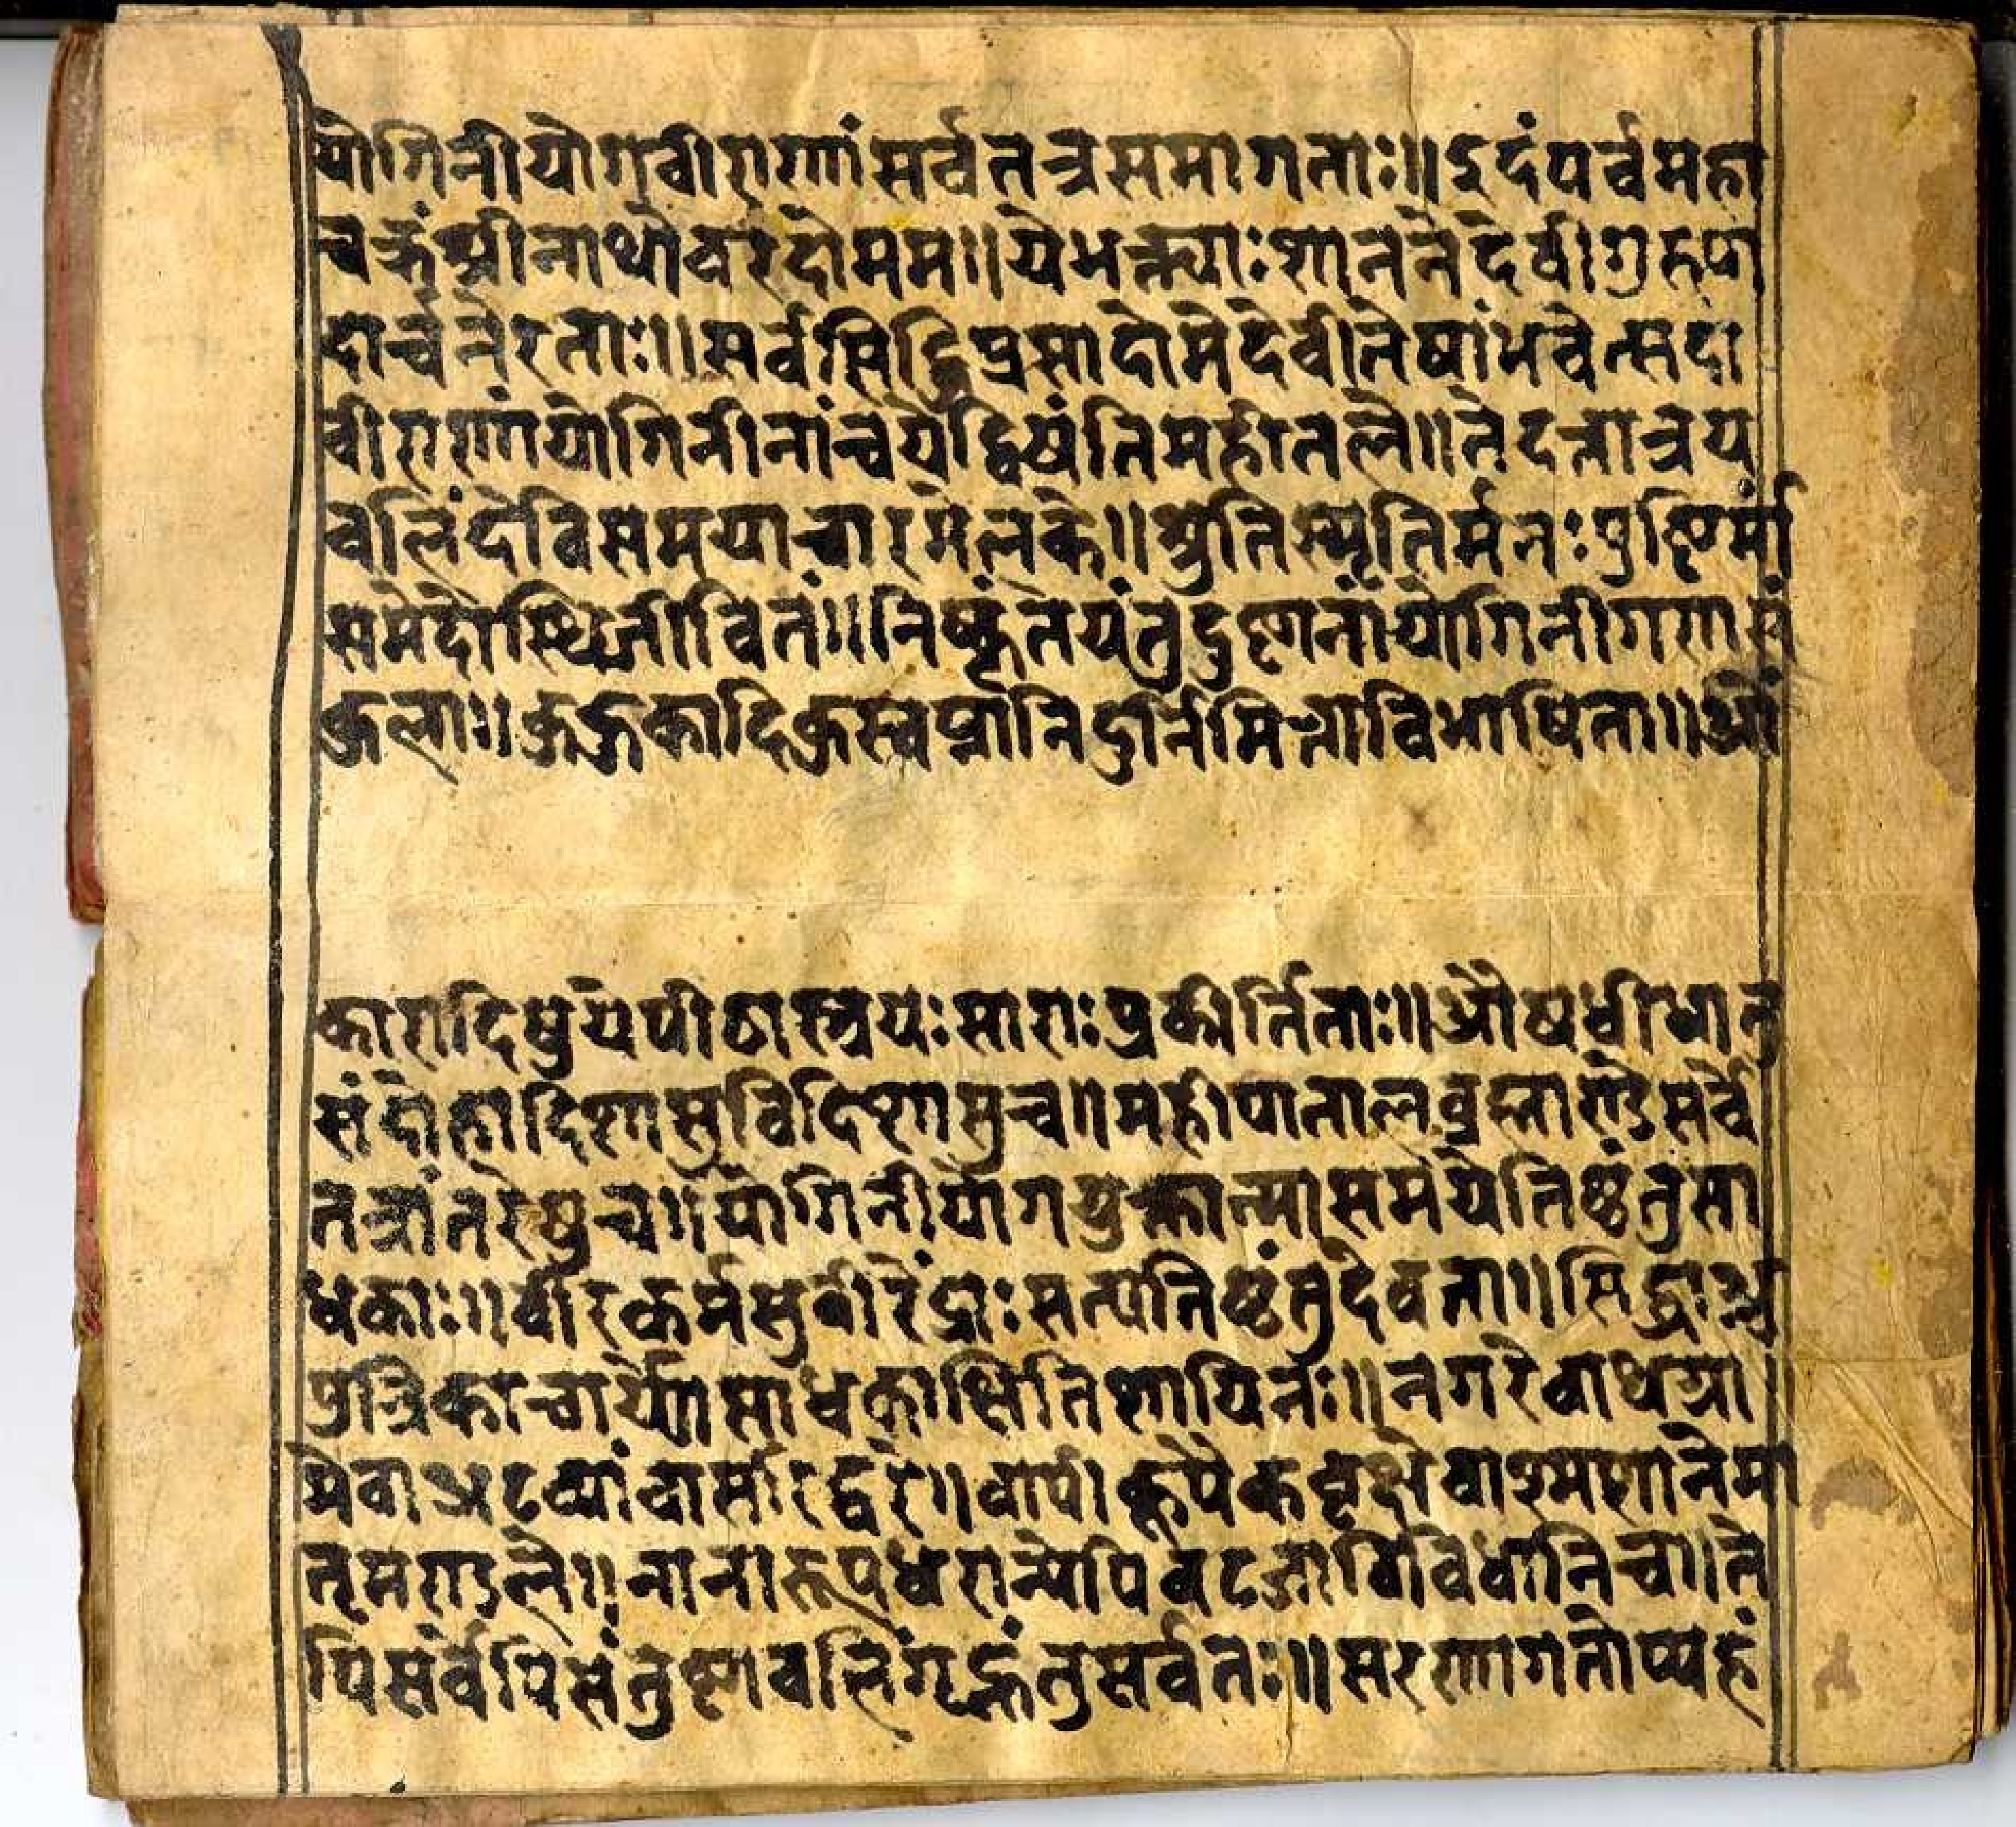 योगिनीयोगवीराणांसर्वतत्रसमागताः॥इदंपर्वमहा
चक्रंश्रीनाथोवरदोमम॥येभक्त्याःशाननेदेवीगुरुपा
दार्चनेरताः॥सर्वसिद्धिप्रसादोमेदेवीतेषांभवेत्सदा
वीराणांयोगिनीनांचयेद्विषंतिमहीतले॥तेदत्तात्रय
वलिंदेविसमयाचारमेलके॥श्रुतिस्मृतिर्मनःपुष्टिर्मां
समेदोस्थिजीवितं॥निष्कृंतयंतुदुष्टानांयोगिनीगणसं
कुलाः॥कुकुकादिकुस्वप्नानिदुर्निमित्ताविभाषिता॥ओं
कारादिषुयेपीठास्त्रयःसाराःप्रकीर्तिताः॥औषधीधातु
संदोहादिशासुविदिशासुच॥महीपातालव्रह्माण्डेसर्वे
तत्रांतरेषुच॥योगिनीयोगयुक्तात्मासमयेतिष्ठंतुसा
धकाः॥वीरकर्मसुवीरेंद्राःसत्यतिष्ठंतुदेवता॥सिद्धाश्च
पुत्रिकाचार्येणसाधकाक्षितिशायिनः॥नगरेवाथग्रा
मेवाअटव्यांवासरिद्वरे॥वापीकूपैकवृक्षेवाश्मशानेमा
तृमण्डले॥नानारूपधरान्येपिवटजाविविधानिच॥ते
पिसर्वेपिसंतुष्टावलिंगृह्णंतुसर्वतः॥सरणागतोप्यहं